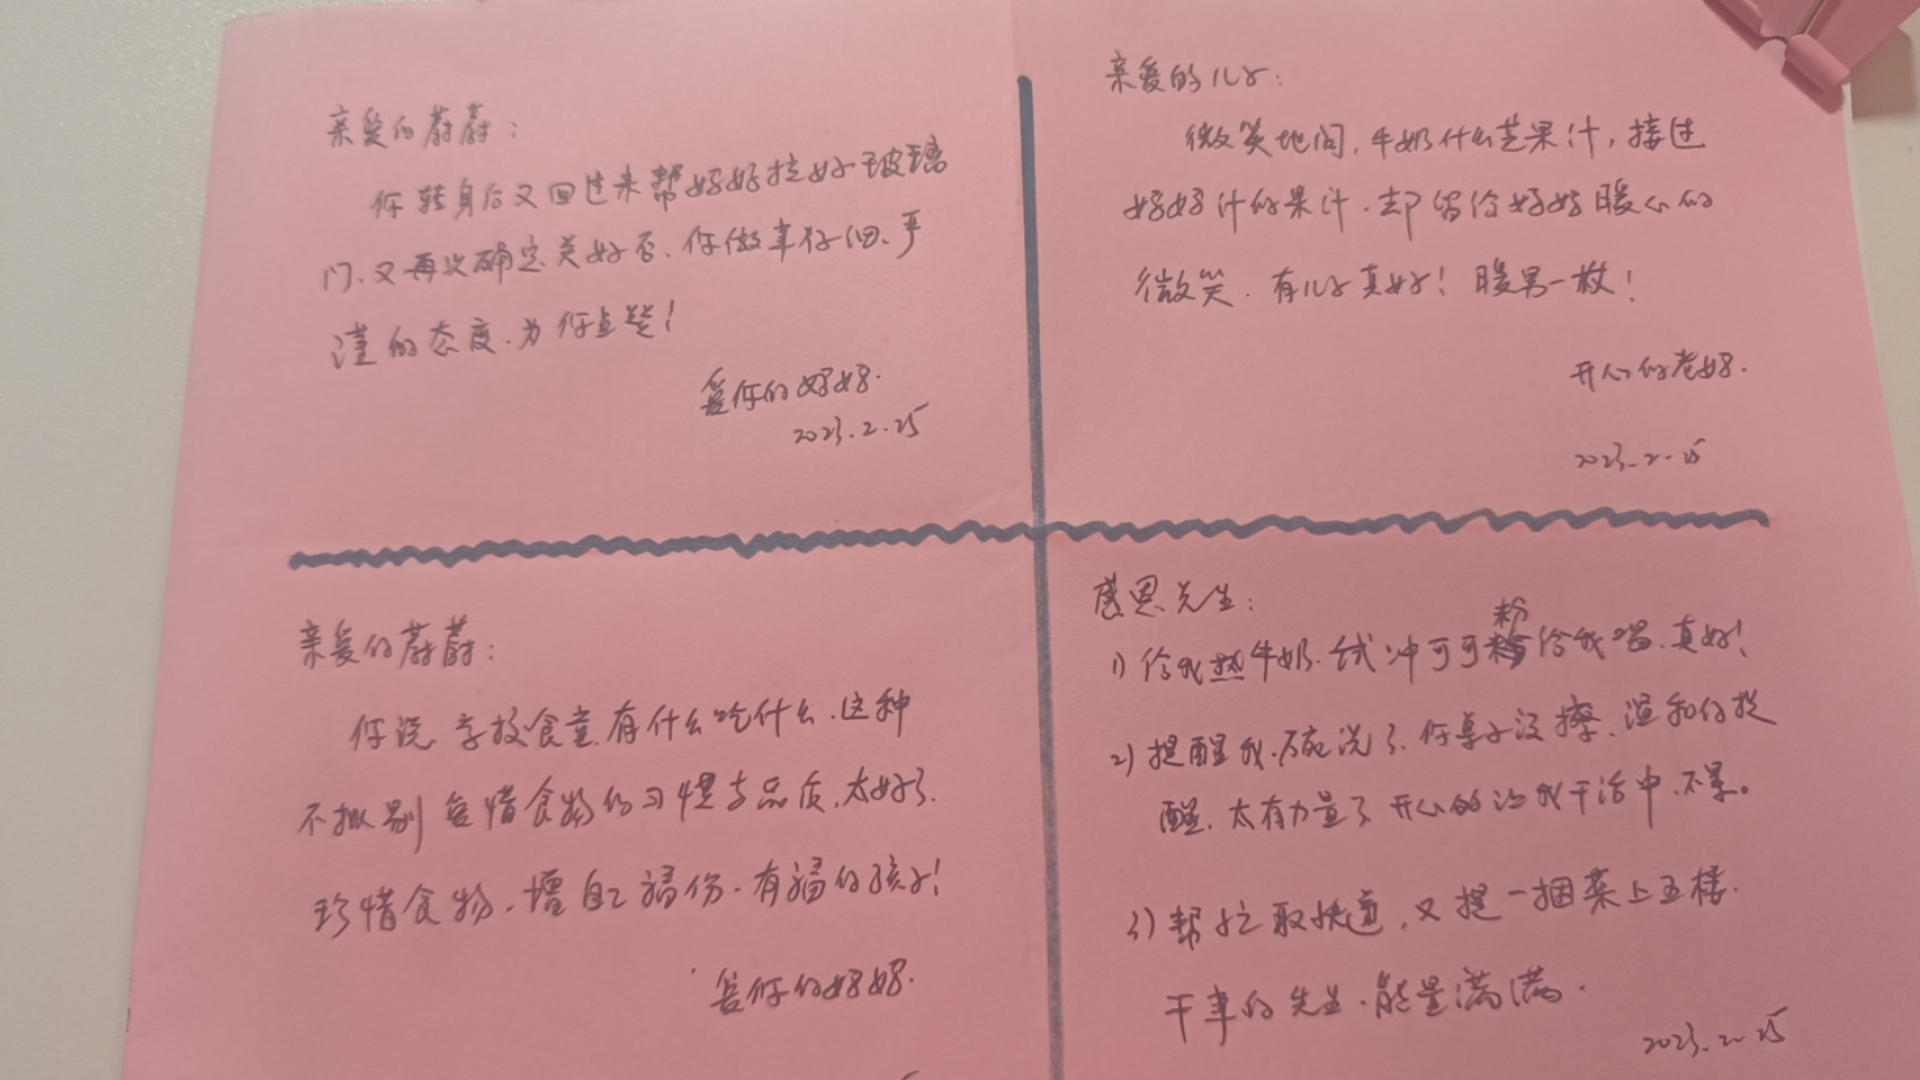 亲爱的蔚蔚：
你转身后又回过来帮妈妈拉好玻璃
门、又再次确定关好否、你做事仔细、严
谨的态度、为你点赞！
爱你的妈妈.
2023.2.25
亲爱的儿子：
微笑地问，牛奶什么芒果汁，接过
妈妈汁的果汁.却留给妈妈暖心的
微笑.有儿子真好！暖男一枚！
开心的老妈.
2023.2.25
亲爱的蔚蔚：
你说学校食堂有什么吃什么.这种
不挑剔爱惜食物的习惯与品质，太好了.
珍惜食物.增自己福份.有福的孩子！
爱你的妈妈.
感恩先生：
1）给我热牛奶.试冲可可粉给我喝.真好！
2）提醒我.碗洗了.你桌子没擦、温和的提
醒.太有力量了开心的让我干活中.不累。
3）帮忙取快递，又提一捆菜上五楼.
干事的先生.能量满满.
2023.2.25